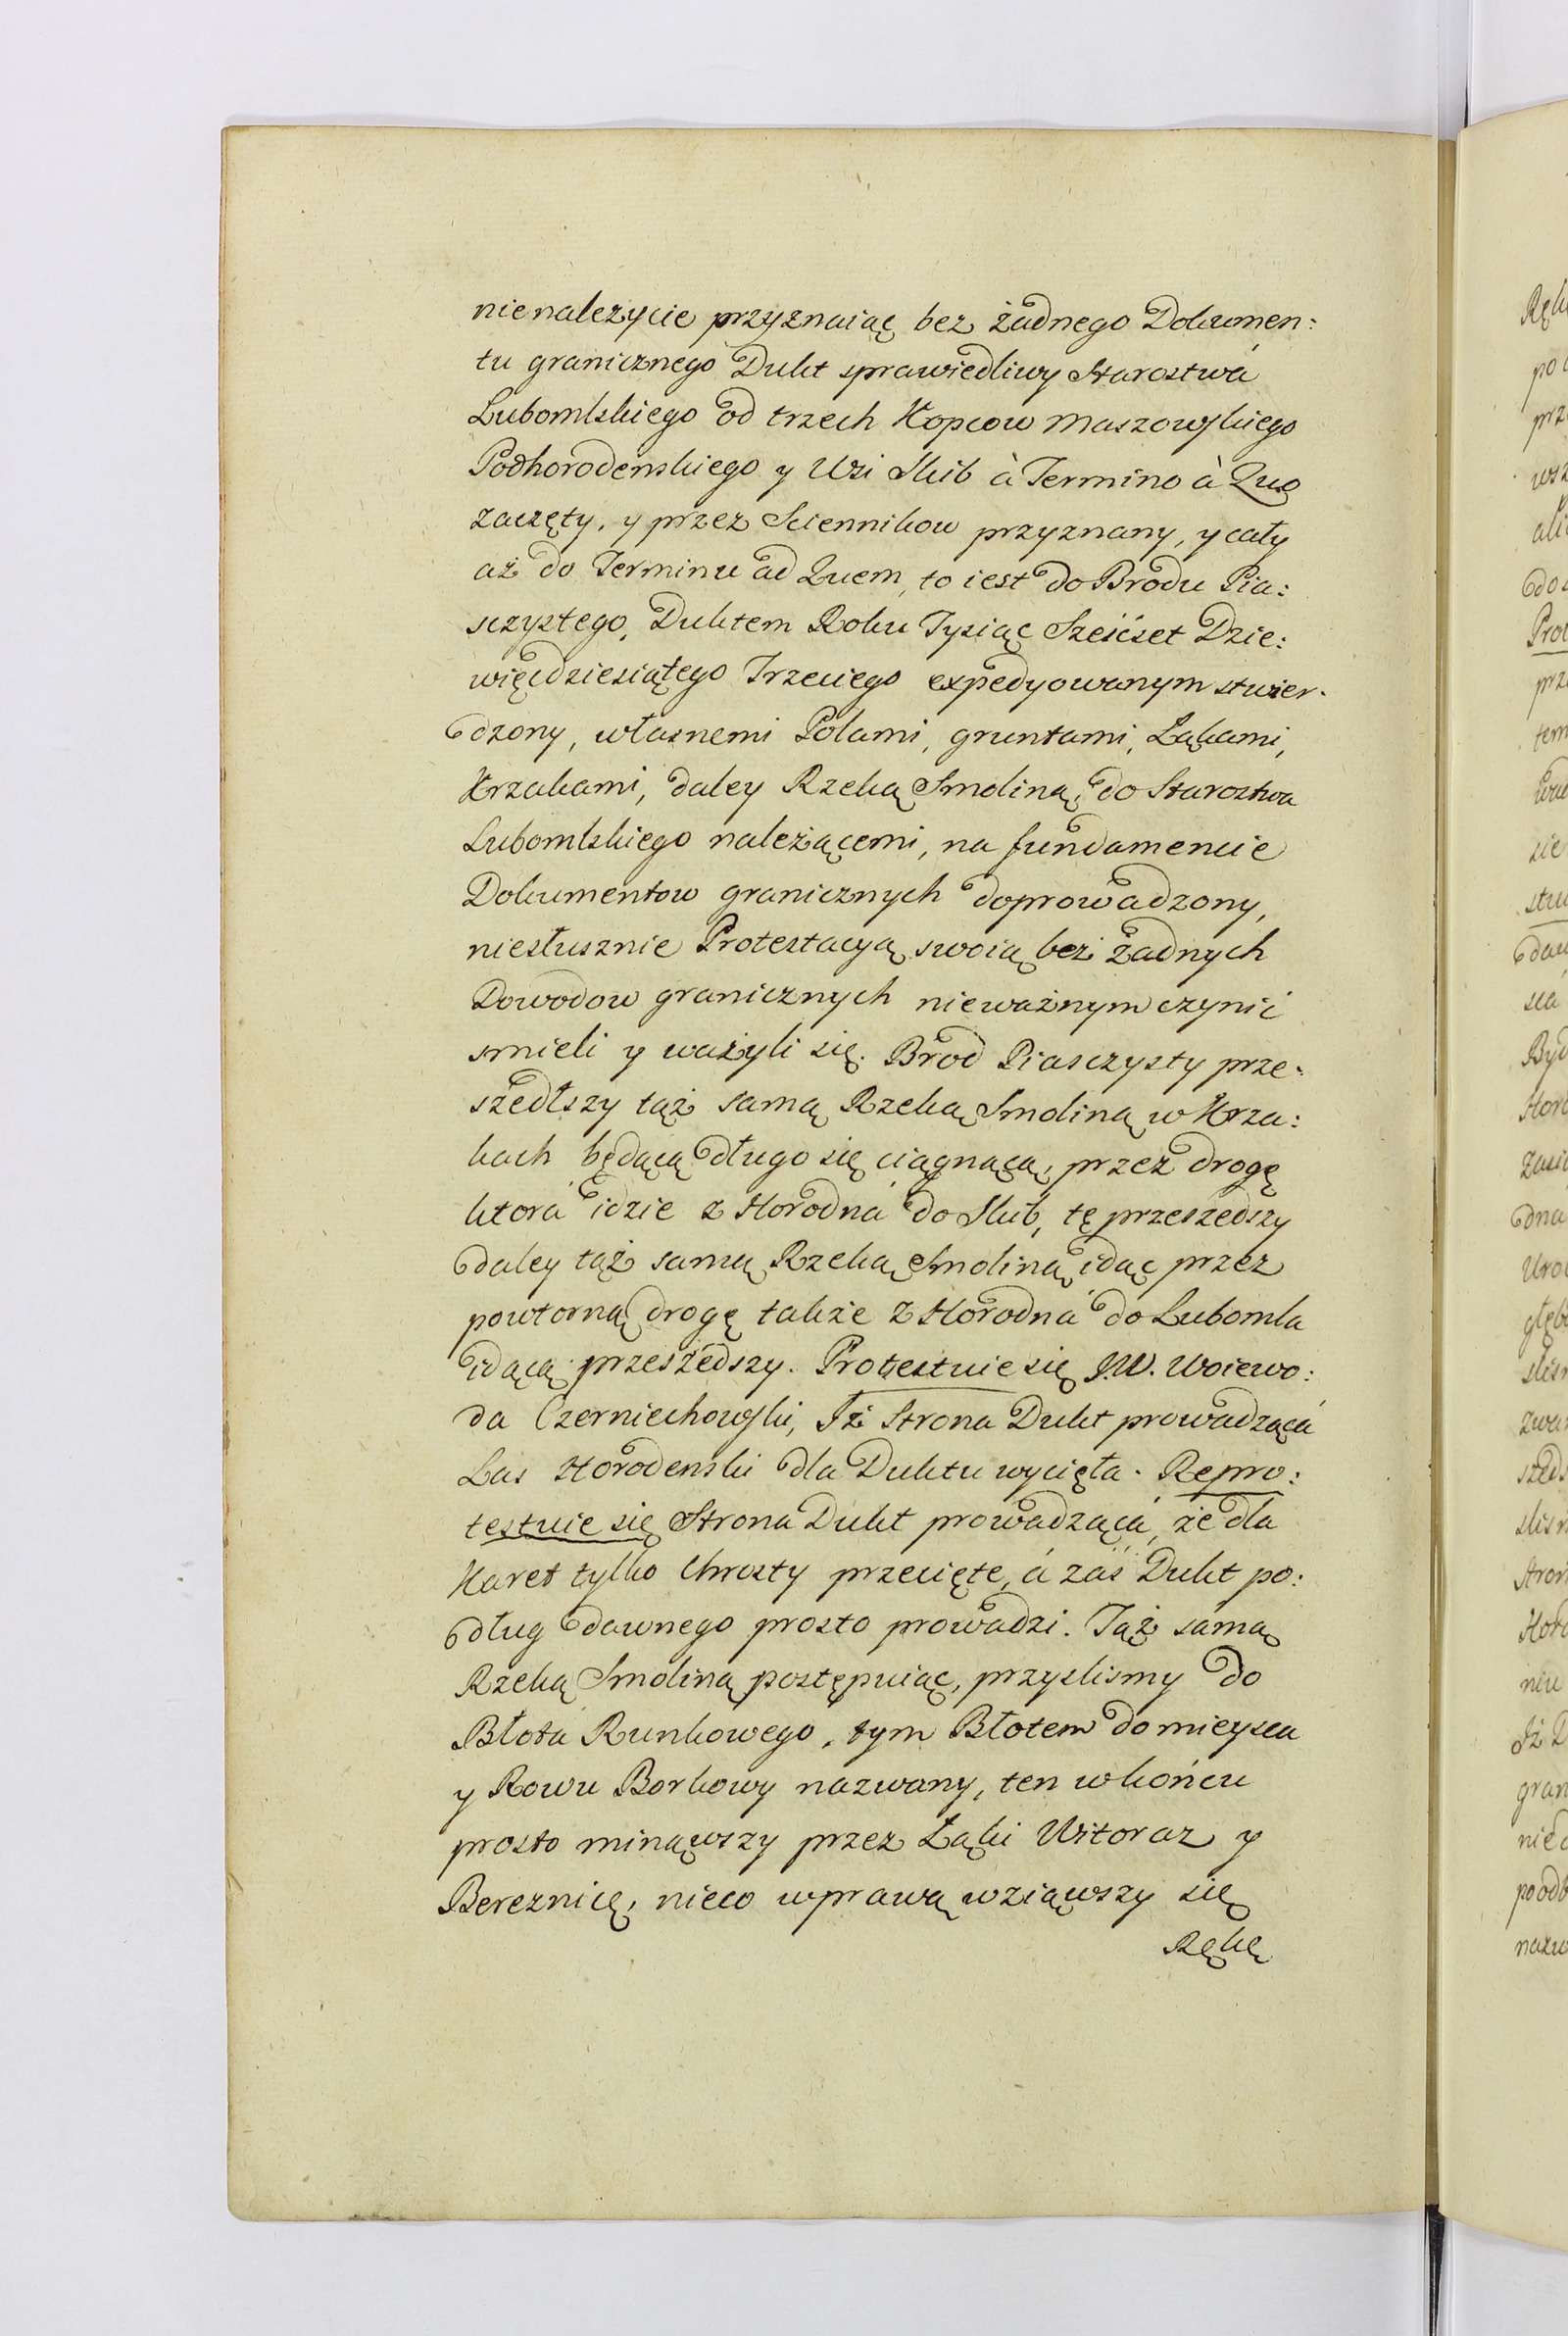 nienależycie przyznaiąc bez żadnego Dokumen:
tu granicznego Dukt sprawiedliwy Starostwá
Lubomlskiego od trzech Kopcow Maszowskiego
Podhorodenskiego y Wsi Skib à Termino à Quo
zaczęty, y przez Sciennikow przyznany, y cały
aż do Terminu ad Quem, to iest do Brodu Pia:
sczystego, Duktem Roku Tysiąc Sześćset Dzie:
więcdziesiątego Trzeciego expedyowanym stwier-
dzony, własnemi Polami, gruntami, Łąkami,
Krzakami, daley Rzeką Smoliną, do Starostwa
Lubomlskiego należącemi, na fundamencie
Dokumentow granicznych doprowadzony,
niesłusznie Protestacyą swoią bez żadnych
Dowodow granicznych nieważnym czynić
smieli y ważyli się. Brod Piasczysty prze-
szedłszy tąż samą Rzeką Smoliną w Krza:
kach będącą długo się ciągnącą, przez drogę
ktorá idzie z Horodná do Skib, tę przeszedszy
daley tąż samą Rzeką Smoliną idąc przez
powtorną drogę także z Horodná do Lubomla
idącą przeszedszy. Protestuie się J.W. Woiewo:
da Czerniechowski, Iż Strona Dukt prowadzącá
Las Horodenski dla Duktu wycięła. Repro:
testuie się Strona Dukt prowadzącá, że dla
Karet tylko Chrosty przecięte, á zaś Dukt po:
dług dawnego prosto prowadzi. Tąż samą
Rzeką Smoliną postępuiąc, przyslismy do
Błotá Runkowego, tym Błotem do mieysca
y Rowu Borkowy nazwany, ten w końcu
prosto minąwszy przez Łąki Witoraz y
Bereznicę, nieco wprawą wziąwszy się
Rękę